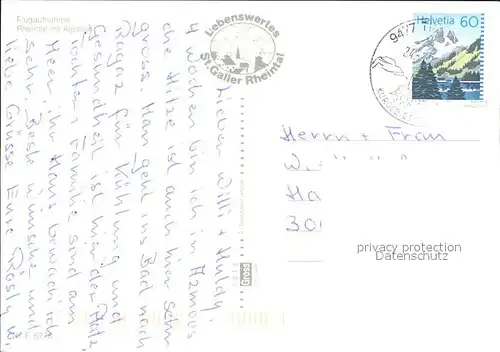 Flugaufnahme
Liebenswertes
St.Galler Rheintal
Helvetia 60
Lieben Willi + Huldy,
4 Wochen bin ich in Azmoos
die Hitze ist auch hier sehr
gross. Man geht ins Bad nach
Ragaz für Kühlung und
Gesundheit ist hier der Platz,
Tochter + Familie sind am
Meer, ihr Haus bewach ich
sehr. Beste Wünsche und
liebe Grüsse Eure Rösly W.
Herrn + Frau
W
Ha
300
Gross
privacy protection
Datenschutz